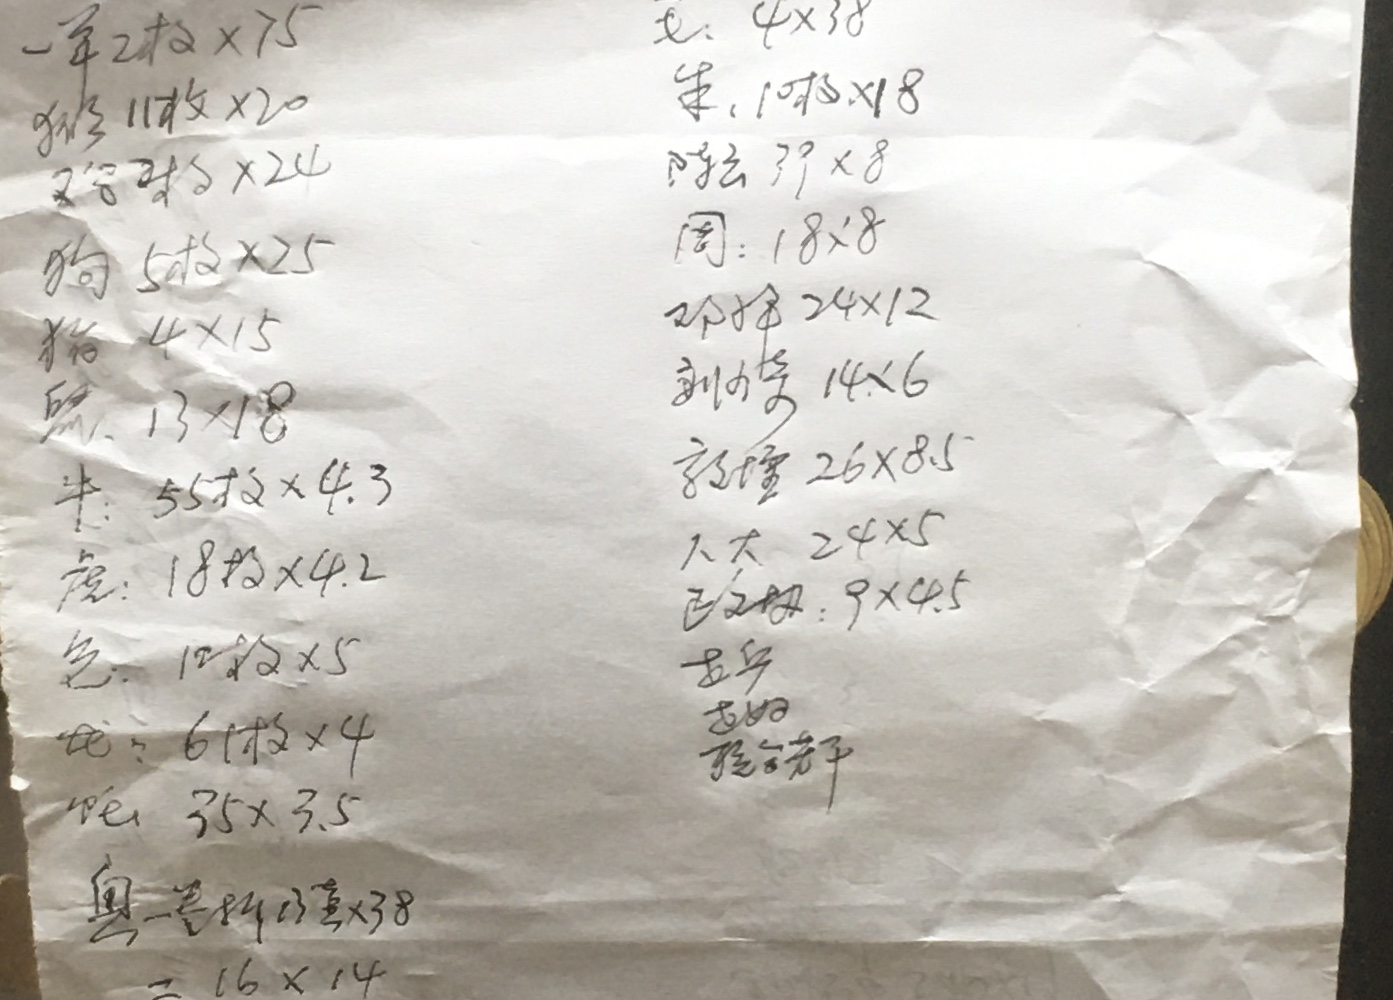 一羊2枚×75
猴 11枚×20
鸡 枚×24
狗 5枚×25
猪 4×15
鼠. 13×18
牛: 55枚×4.3
虎: 18枚×4.2
兔: 12枚×5
龙: 61枚×4
蛇: 35×3.5
奥一卷拆13套×38
二 16×14
毛: 4×38
朱. 10枚×18
陈云 39×8
周: 18×8
邓 24×12
刘少奇 14×6
敦煌 26×8.5
人大 24×5
9×4.5